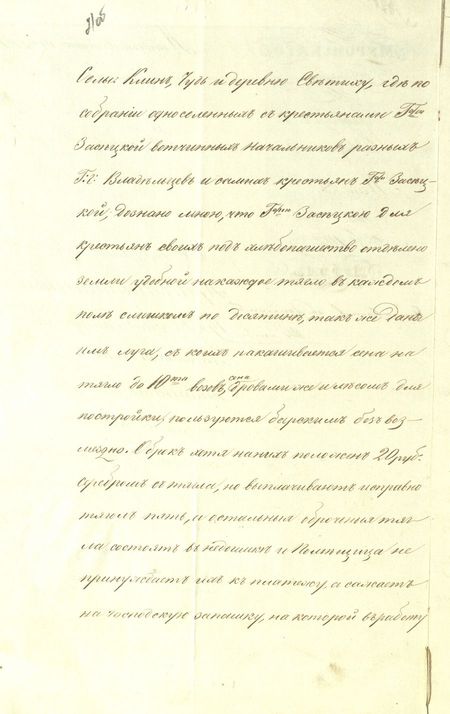 Селы: Клинъ, Чудь и деревню Святиху, гдѣ по
собраніи односеленныхъ съ крестьянами Г-жи
Засѣцкой вотчинныхъ начальниковъ разныхъ
Г.г: Владѣльцевъ и самихъ крестьянъ Г-жи Засѣц-
кой, дознано мною, что Г-жею Засѣцкою для
крестьянъ своихъ подъ хлѣбопашество отдѣлено
земли удобной на каждое тягло въ каждомъ
полѣ слишкомъ по десятинѣ, такъ же даны
имъ луга, съ коихъ накашивается сена на
тягло до 10ти возовъ, сена дровами же и лѣсомъ для
постройки, пользуются барскимъ безъ воз-
мездно. Оброкъ хотя на нихъ положенъ 20 руб.
серебромъ съ тягла, но выплачиваютъ исправно
тяголъ пять, а остальныя оброчныя тяг-
ла состоятъ въ недоимкѣ и Помѣщица не
принуждаетъ ихъ къ платежу, а сажаетъ
на господскую запашку, на которой въ работу